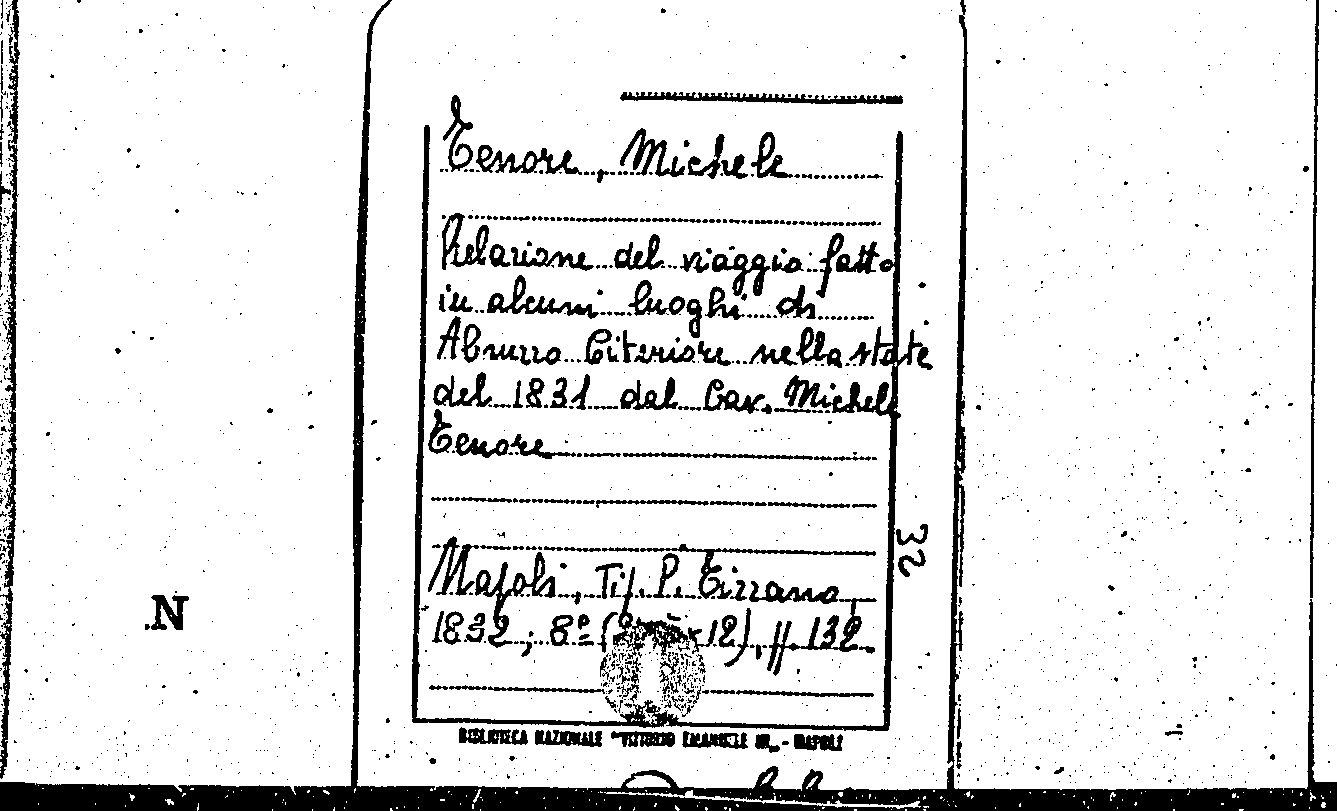 Tenore, Michele
Relazione del viaggio fatto
in alcuni luoghi di
Abruzzo Citeriore nella state
del 1831 dal Cav. Michele
Tenore
32
Napoli, Tip. P. Tizzano,
N
1832, 8º ( -12), pp. 132.
BIBLIOTECA NAZIONALE "VITTORIO EMANUELE III" - NAPOLI